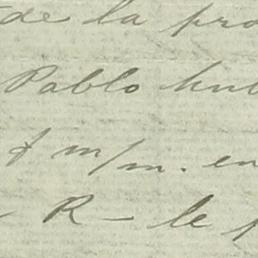 de la pro
Pablo hub
m/m. en
- R - le